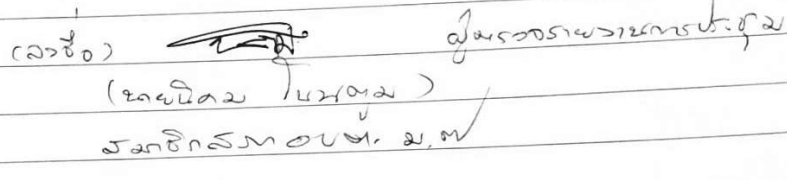 (ลงชื่อ) ผู้ตรวจรายงานการประชุม
(นายนิคม โนนตูม)
สมาชิกสภา อบต. ม.๗